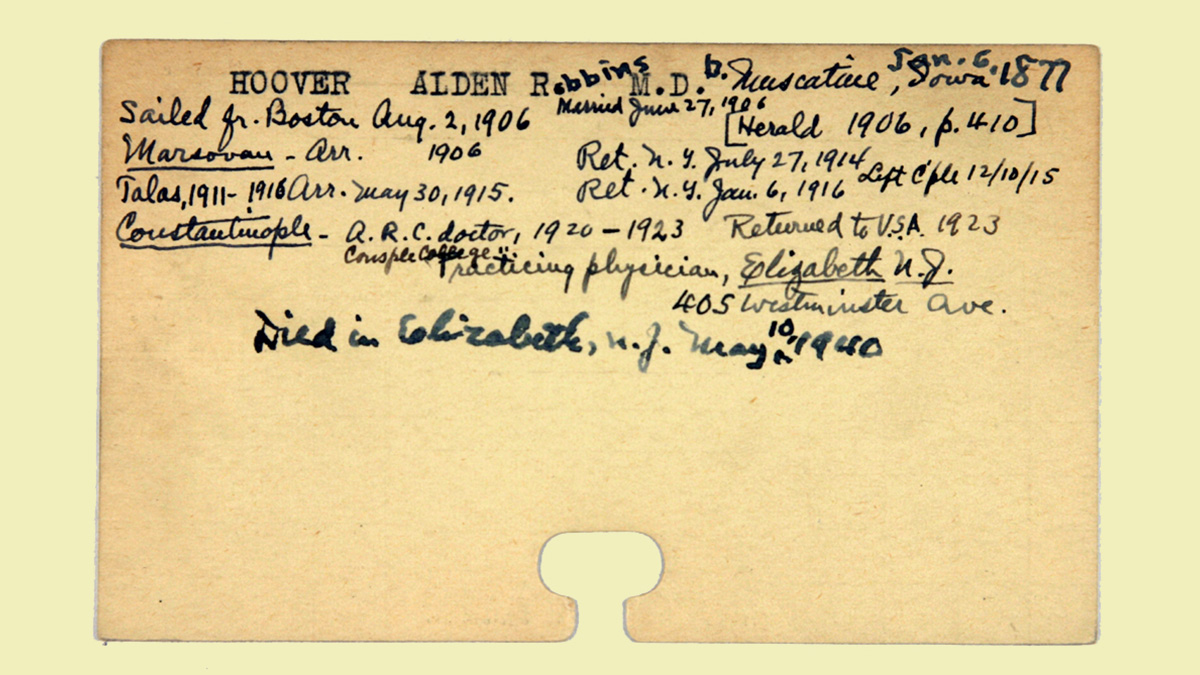 HOOVER ALDEN Robbins M.D. b. Muscatine, Iowa Jan. 6, 1877
Sailed fr. Boston Aug. 2, 1906 Married June 27, 1906
[Herald 1906, p. 410]
Marsovan - Arr. 1906 Ret. N. Y. July 27, 1914
Talas, 1911-1916 Arr. May 30, 1915. Ret. N. Y. Jan. 6, 1916 Left C'ple 12/10/15
Constantinople - A. R. C. doctor, 1920 - 1923 Returned to U.S.A. 1923
Consple College " :
Practicing physician, Elizabeth N. J.
405 Westminster Ave.
Died in Elizabeth, N. J. May 10, 1940